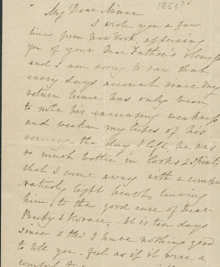 1866?
My Dear Ninian
I wrote you a few
lines from New York apprising
you of your Dear Father's illness
and I am sorry to say that
every day's account since my
return home has only been
to note his increasing weakness
and weaken my hopes of his
recovery. the day I left he was
so much better in looks & spirits
that I came away with a comp
light heart, leaving
him to the good care of dear
& Horace. It is ten days
since & tho' I have nothing good
to tell you. feel as if it were a
comfort to